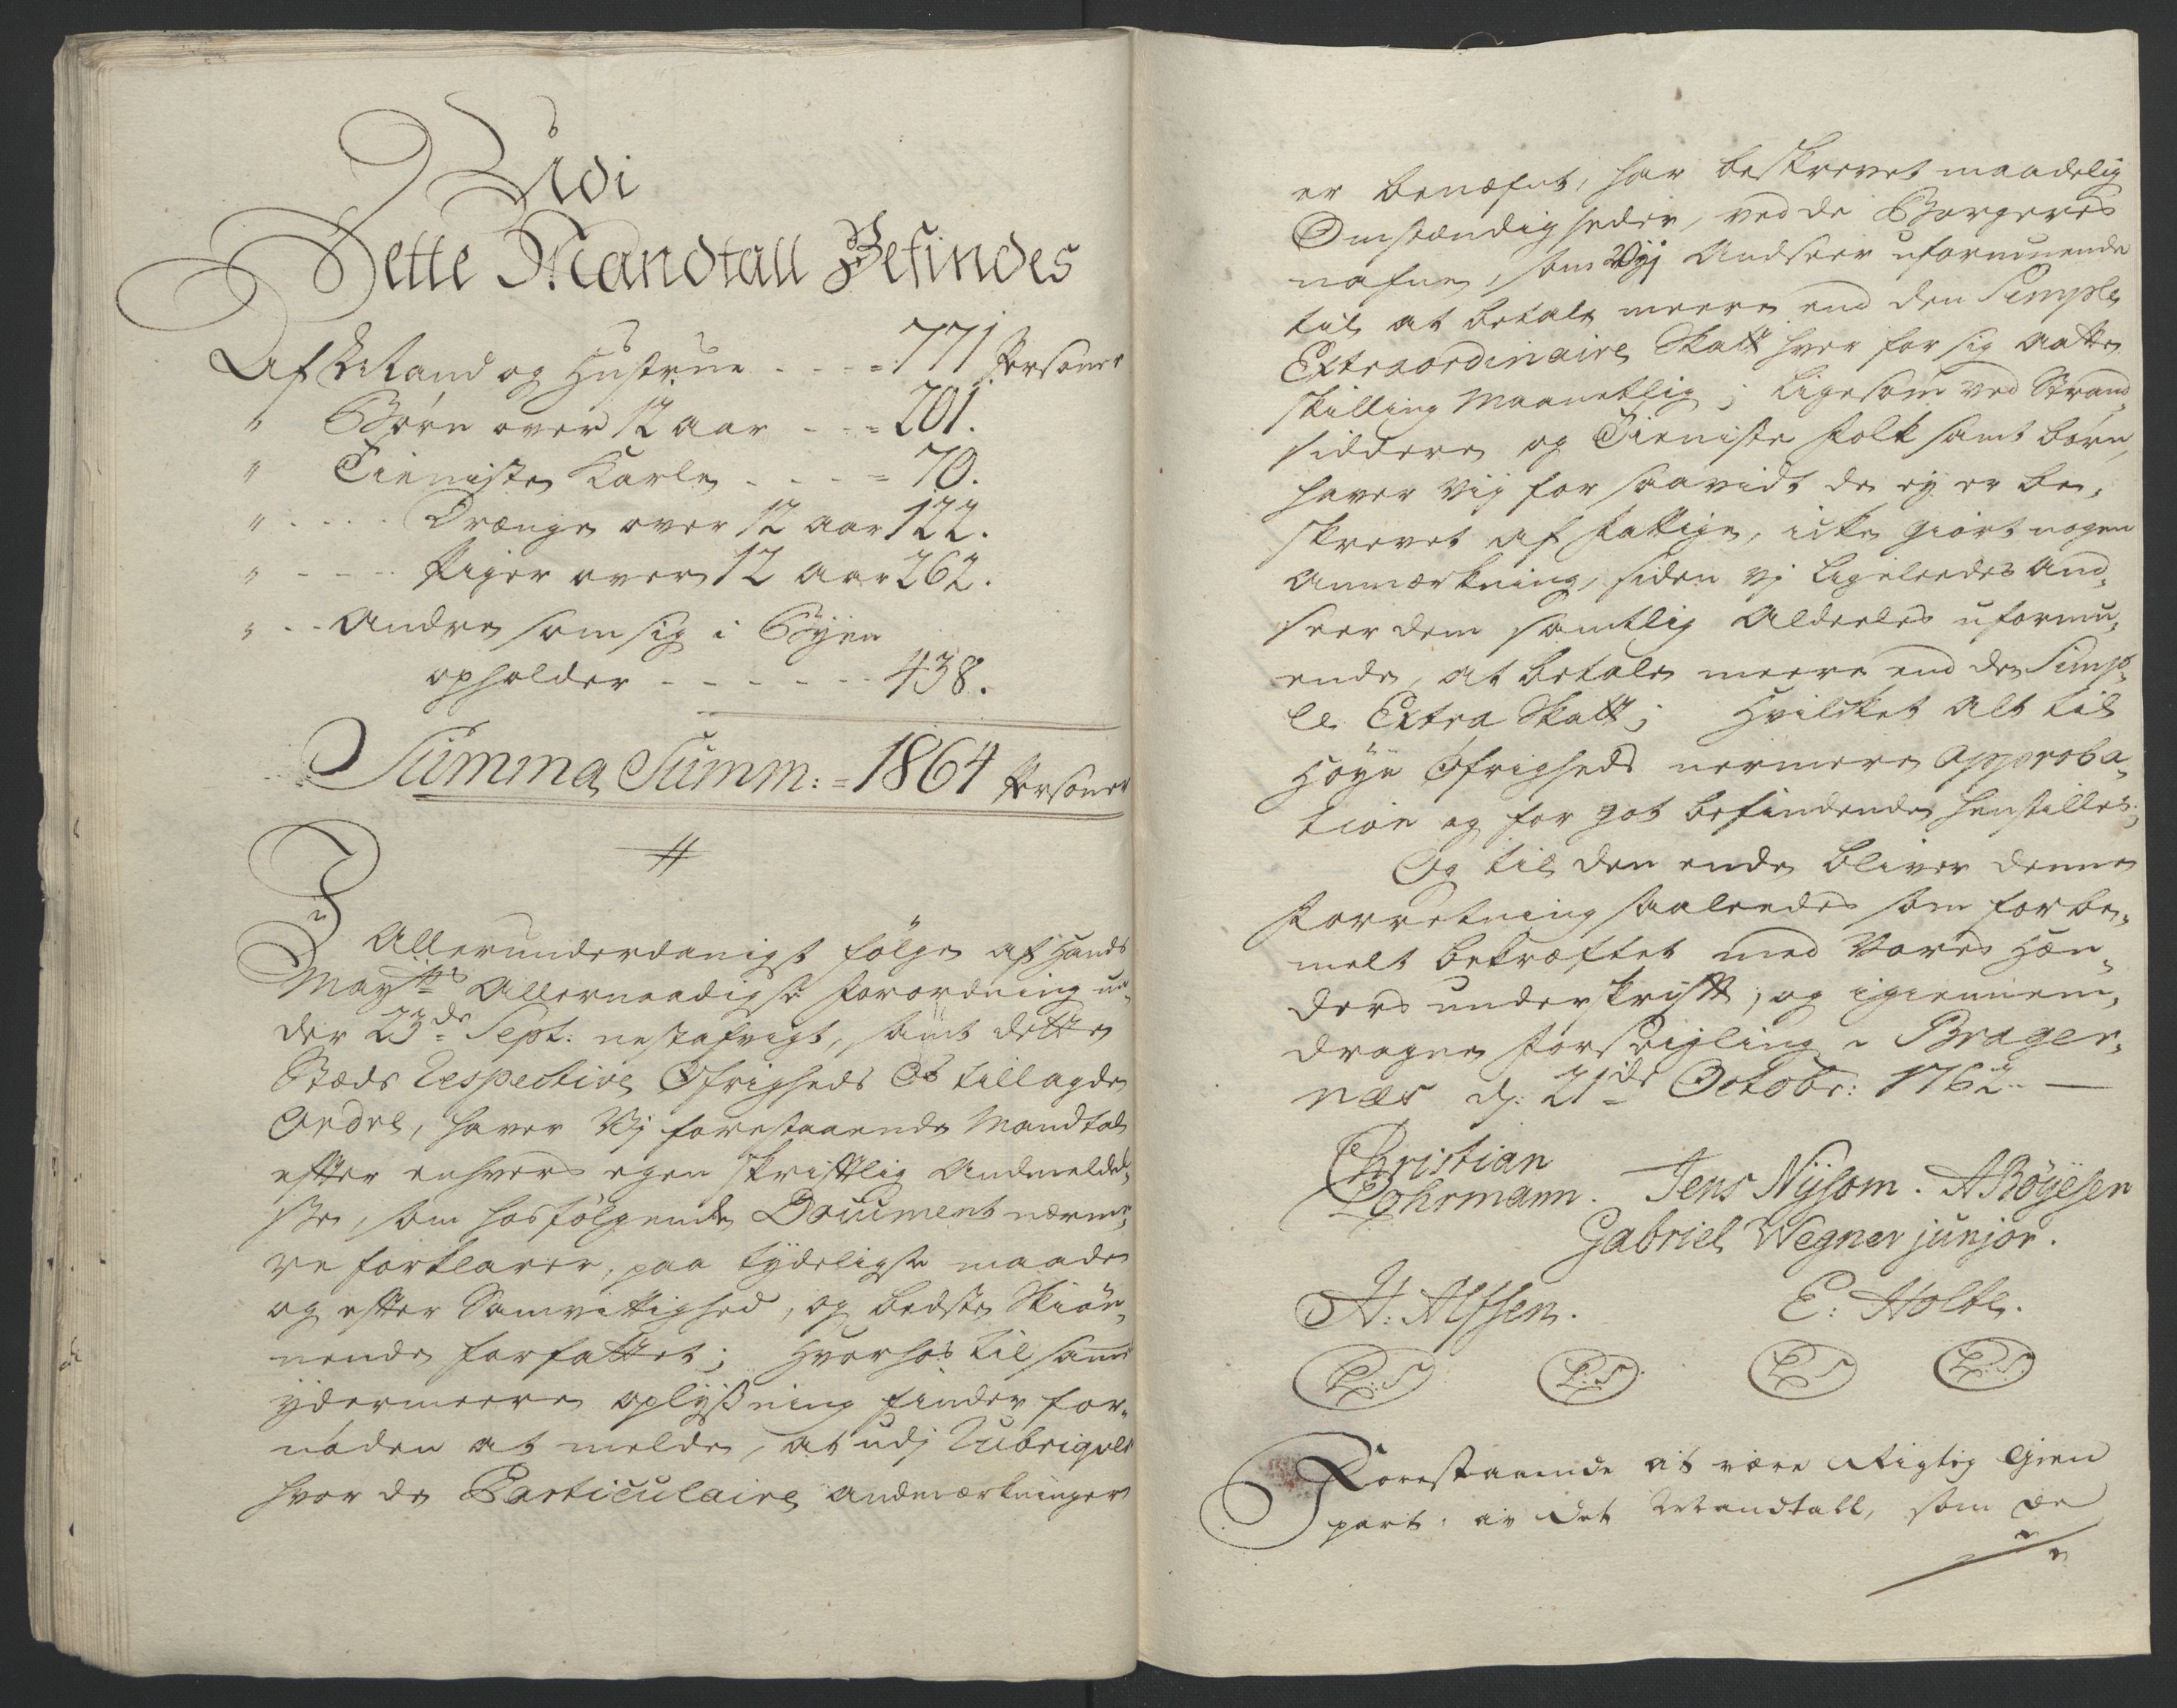 Udi
Dette Mandtall Befindes
Af Mand og Hustrue - - - = 771 Persooner
" Børn over 12 aar - - = 201.
" Tieniste Karle - - - - = 70.
" - - - - Drænge over 12 aar 122.
" - - - - Piger over 12 Aar 262.
" - - Andre som sig i Byen
opholder - - - - - - 438.
Summa Summ: = 1864 Persooner
I Allerunderdanigst følge af Hands
Mayts Allernaadigste Forordning un„
der 23de Sept: nestafvigt, samt dette
Stæds Respective Øfrigheds os tillagde
Ordre, haver Vj forestaaende Mandtal
efter enhvers egen skriftlig Andmeldel„
se, som hosfølgende Document nærme„
re forklarer, paa tydeligste maade
og efter Samvittighed, og bedste Skiøn„
nende forfattet; Hvorhos til samme
ydermeere oplysning finder for„
nøden at melde, at udj Rubriqven
hvor de Particulaire andmærkninger
er benæfnt, har beskrevet maadelig
Omstændigheder, ved de Borgeres
nafne, som Vj Andseer uformuende
til at betale meere end den Simple
Extraordinaire Skatt hver for sig aatte
skilling Maanetlig; ligesom ved Strand„
siddere og Tieniste folk samt børn,
haver Vj for saavidt de ey er be„
skrevet af fattige, icke giørt nogen
Anmærkning, siden vj ligeleedes And„
seer dem samtlig Aldeeles uformu„
ende, at betale meere end den Simp„
le Extra Skatt; Hvilcket alt til
Høye Øfrigheds nermere Approba„
tion og for got befindende henstilles;
Og til den ende bliver denne
Forretning saaleedes som forbe„
melt bekræftet med Vores Hæn„
ders underskrift, og igiennem„
dragne forseigling ~ Brager„
næs d: 21de Octobr: 1762. —
Christian
Lohrmann. Jens Nysom. A Röyesen
Gabriel Wegner junjor.
A: Alfsen. E: Holte.
L:S L:S L:S L:S
Forestaaende at være Rigtig Gien
part, av det Mandtall, som de